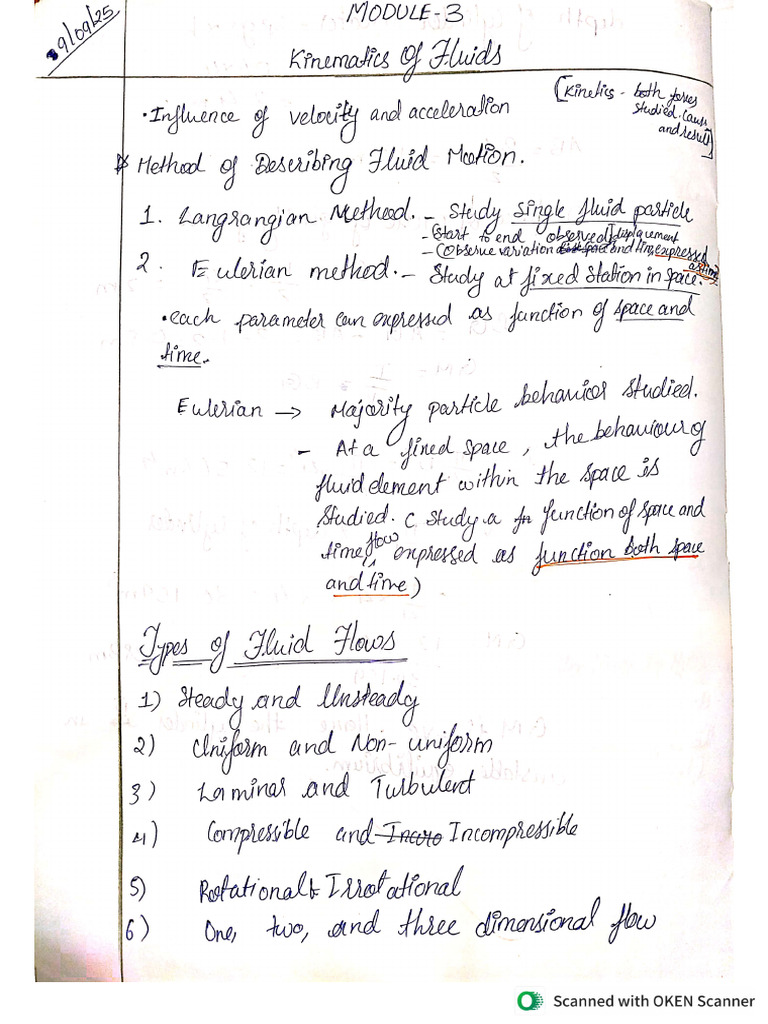 9/09/25
MODULE-3
Kinematics Of Fluids
(Kinetics - both forces
studied. Cause
and result)
• Influence of velocity and acceleration
Method of Describing Fluid Motion.
1. Langrangian Method. - Study single fluid particle
- (Start to end observed) displacement
- (Observe variation and time, expressed
2. Eulerian method. - Study at fixed station in space.
• each parameter can expressed as function of space and
time.
Eulerian → Majority particle behavior studied.
- At a fixed space, the behaviour of
fluid element within the space is
studied. ( Study a fn function of space and
time, flow expressed as function both space
and time)
Types of Fluid Flows
1) Steady and Unsteady
2) Uniform and Non-uniform
3) Laminar and Turbulent
4) Compressible and Incom Incompressible
5) Rotational & Irrotational
6) One, two, and three dimensional flow
Scanned with OKEN Scanner